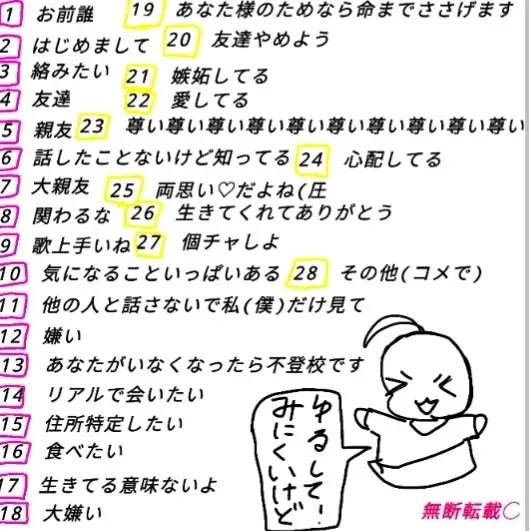 1 お前誰
2 はじめまして
3 絡みたい
4 友達
5 親友
6 話したことないけど知ってる
7 大親友
8 関わるな
9 歌上手いね
10 気になることいっぱいある
11 他の人と話さないで私(僕)だけ見て
12 嫌い
13 あなたがいなくなったら不登校です
14 リアルで会いたい
15 住所特定したい
16 食べたい
17 生きてる意味ないよ
18 大嫌い
19 あなた様のためなら命までささげます
20 友達やめよう
21 嫉妬してる
22 愛してる
23 尊い尊い尊い尊い尊い尊い尊い尊い尊い尊い
24 心配してる
25 両思い♡だよね(圧
26 生きてくれてありがとう
27 個チャしよ
28 その他(コメで)
ゆるしてー
みにくいけど
無断転載◯